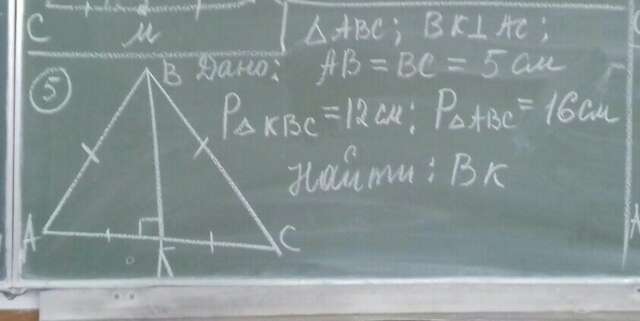 C
M
△ABC; BK⊥AC;
5
B
Дано: AB = BC = 5 см
P△KBC = 12 см; P△ABC = 16 см
Найти: BK
A
C
K